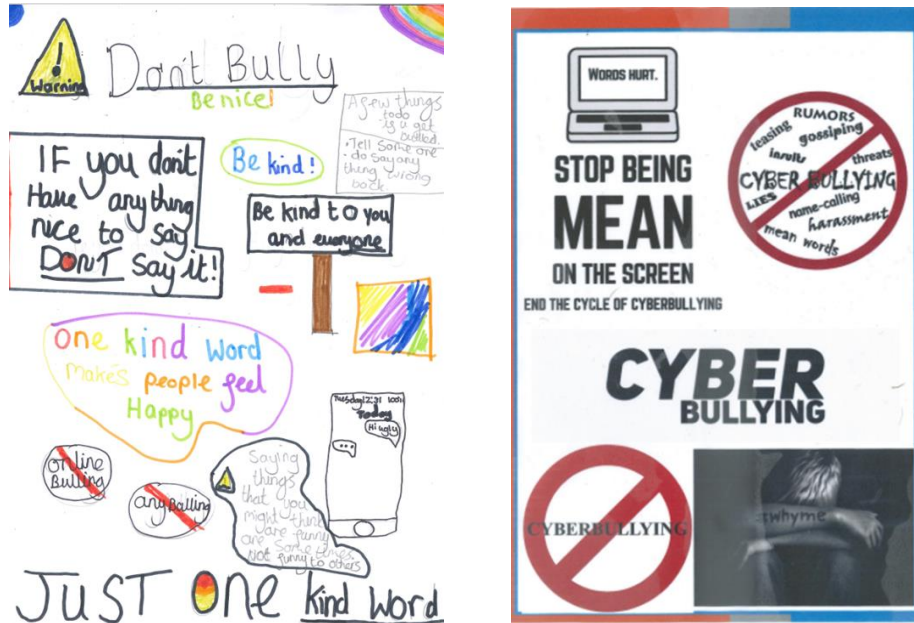 !
Warning
Don't Bully
Be nice!
A few things
to do
is u get
bullied.
• Tell some one
• do say any
thing wrong
back
IF you don't
Have anything
nice to say
DON'T say it!
Be kind!
Be kind to you
and everyone
One kind word
makes people feel
Happy
Tuesday 12:31 100%
Today
Hi ugly
...
online
Bulling
any Bulling
Saying
things
that you
might think
are funny
are Some times
Not funny to others
JUST One kind word
WORDS HURT.
STOP BEING
MEAN
ON THE SCREEN
END THE CYCLE OF CYBERBULLYING
RUMORS
teasing
gossiping
insults
threats
CYBER BULLYING
LIES
name-calling
harassment
mean words
CYBER
BULLYING
CYBERBULLYING
#whyme